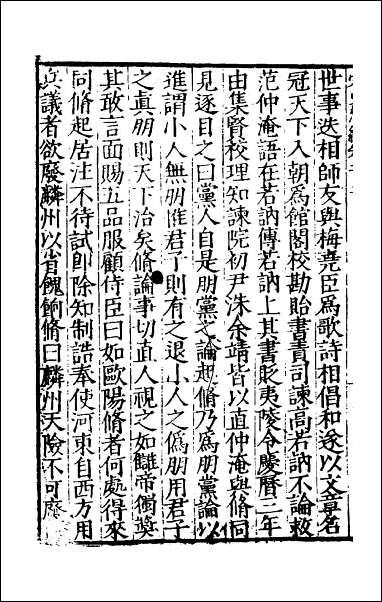 世事迭相師友與梅堯臣爲歌詩相倡和遂以文章名
冠天下入朝爲館閣校勘貽書責司諫高若訥不論救
范仲淹語在若訥傳若訥上其書貶夷陵令慶曆三年
由集賢校理知諫院初尹洙余靖皆以直仲淹與脩同
見逐目之曰黨人自是朋黨之論起脩乃爲朋黨論以
進謂小人無朋惟君子則有之退小人之僞朋用君子
之眞朋則天下治矣脩論事切直人視之如讎帝獨獎
其敢言面賜五品服顧侍臣曰如歐陽脩者何處得來
同脩起居注不待試卽除知制誥奉使河東自西方用
兵議者欲廢麟州以省餽餉脩曰麟州天險不可廢